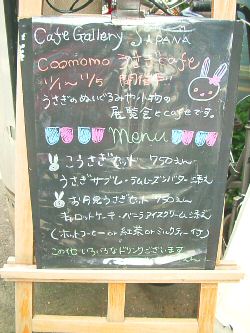 Cafe Gallery JAPANA
Coomomo うさぎcafe
11/1〜11/5 開催中
うさぎのぬいぐるみや小物の
展覧会とcafeです。
Menu
こうさぎセット 750えん
うさぎサブレ・ラムレーズンバター添え
お月見うさぎセット 750えん
キャロットケーキ・バニラアイスクリーム添え
(ホットコーヒー or 紅茶 or ミルクティー付)
この他いろいろなドリンクございます